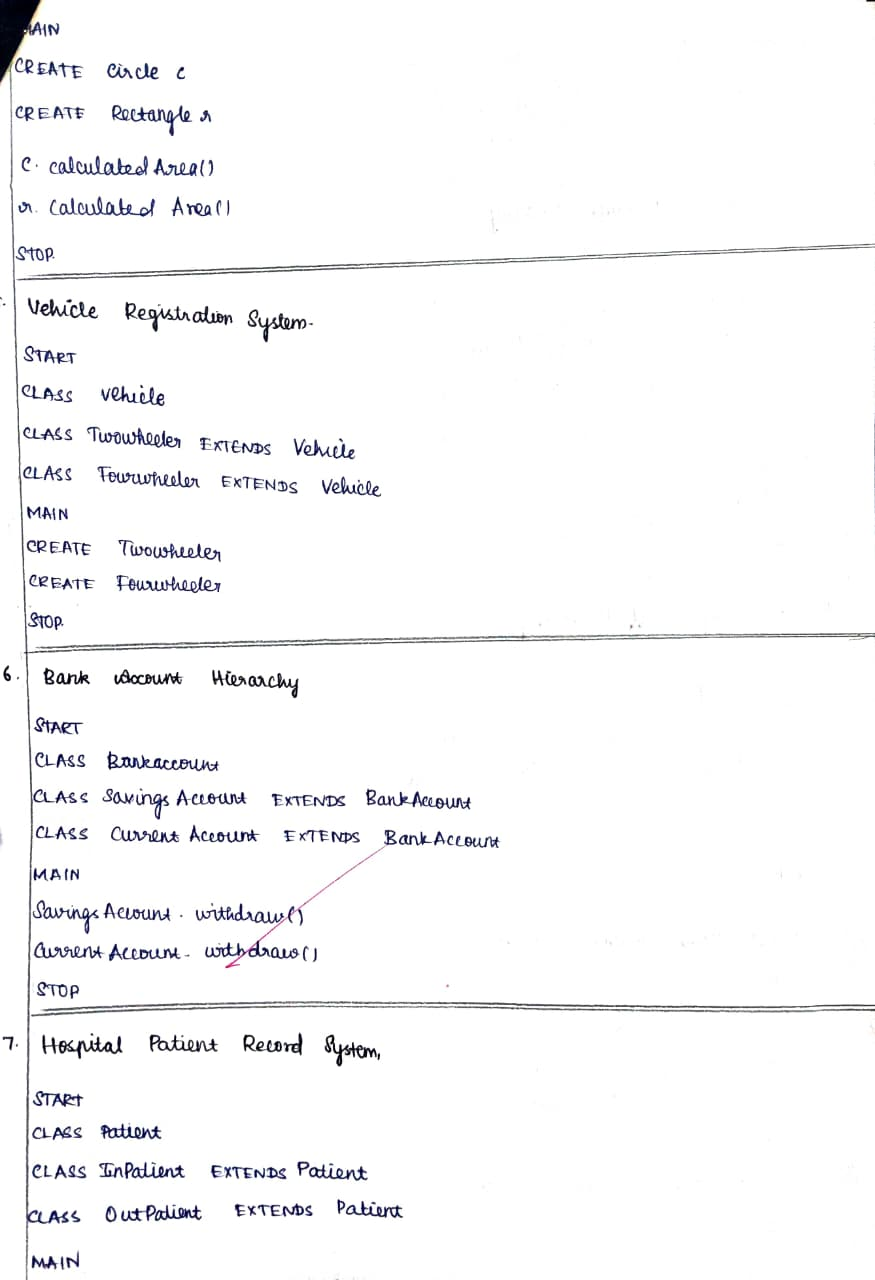 MAIN
CREATE Circle c
CREATE Rectangle r
C. calculatedArea()
r. Calculated Area()
STOP.
Vehicle Registration System.
START
CLASS Vehicle
CLASS Twowheeler EXTENDS Vehicle
CLASS Fourwheeler EXTENDS Vehicle
MAIN
CREATE Twowheeler
CREATE Fourwheeler
STOP.
6. Bank Account Hierarchy
START
CLASS Bankaccount
CLASS Savings Account EXTENDS BankAccount
CLASS Current Account EXTENDS BankAccount
MAIN
Savings Account. withdraw()
Current Account. withdraw()
STOP
7. Hospital Patient Record System,
START
CLASS Patient
CLASS InPatient EXTENDS Patient
CLASS OutPatient EXTENDS Patient
MAIN